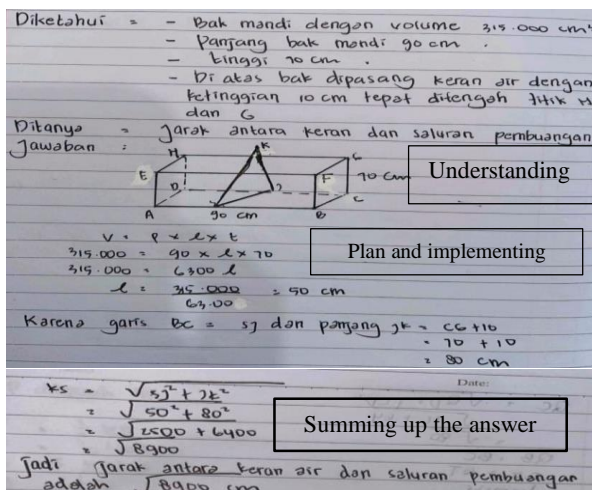 Diketahui = - Bak mandi dengan volume 315.000 cm³
- Panjang bak mandi 90 cm.
- tinggi 70 cm.
- Di atas bak dipasang keran air dengan
ketinggian 10 cm tepat ditengah titik H
dan G
Ditanya = Jarak antara keran dan saluran pembuangan
Jawaban :
H K G
E D J F 70 cm C
A 90 cm B
Understanding
V = p x l x t
315.000 = 90 x l x 70
315.000 = 6300 l
l = 315.000 / 63.00 = 50 cm
Plan and implementing
Karena garis BC = SJ dan panjang JK = CG + 10
= 70 + 10
= 80 cm
Date:
KS = √SJ² + JK²
= √50² + 80²
= √2500 + 6400
= √8900
Summing up the answer
Jadi jarak antara keran air dan saluran pembuangan
adalah √8900 cm